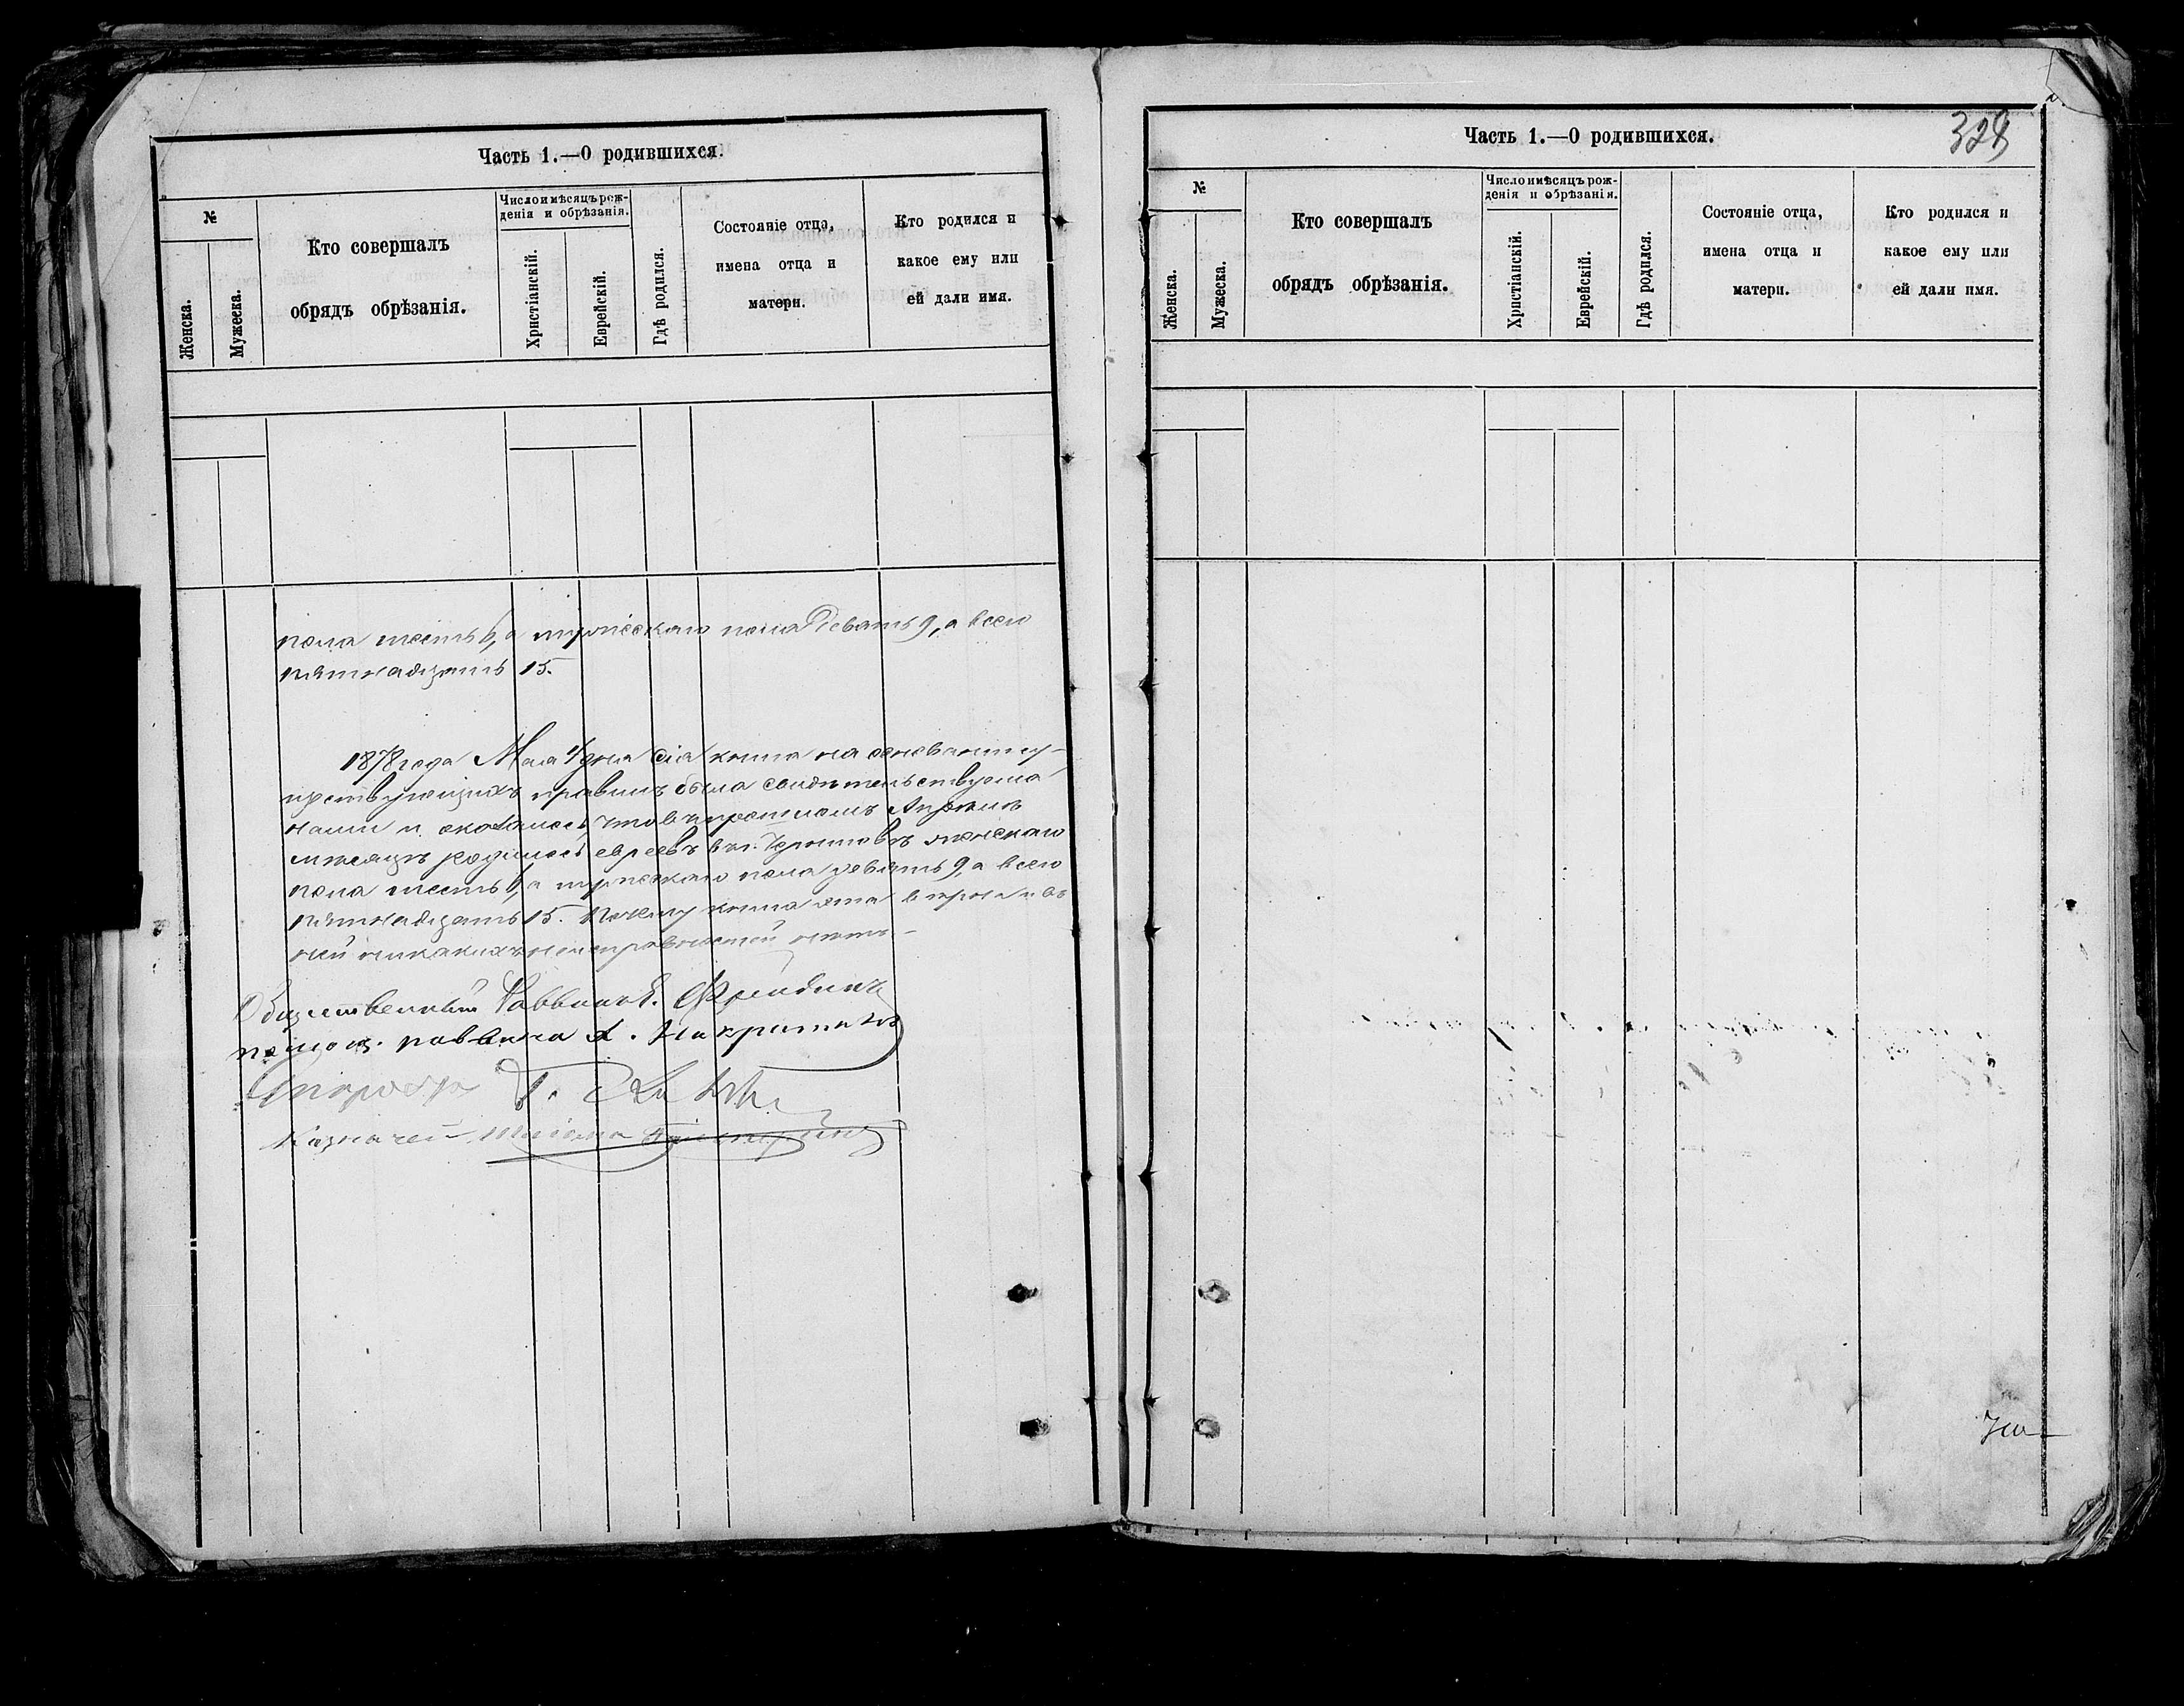 Часть 1.—О родившихся.
№
Женска.
Мужеска.
Кто совершалъ
обрядъ обрѣзанія.
Число и мѣсяцъ рож-
денія и обрѣзанія.
Христіанскій.
Еврейскій.
Гдѣ родился.
Состояніе отца,
имена отца и
матери.
Кто родился и
какое ему или
ей дали имя.
пола шесть 6, а мужескаго пола девять 9, а всего
пятнадцать 15.
1878 года Мая 1 дня сія книга на основаніи су-
ществующихъ правилъ была свидѣтельствуема
нами и оказалось, что въ прошломъ Апрѣлѣ
мѣсяцѣ родилось евреевъ в г. женскаго
пола шесть 6, а мужескаго пола девять 9, а всего
пятнадцать 15. книга эта и въ
ней никакихъ неисправностей нѣтъ
Общественный Раввинъ Фрейдинъ
помощ. раввина
Казначей
Часть 1.—О родившихся.
329
№
Женска.
Мужеска.
Кто совершалъ
обрядъ обрѣзанія.
Число и мѣсяцъ рож-
денія и обрѣзанія.
Христіанскій.
Еврейскій.
Гдѣ родился.
Состояніе отца,
имена отца и
матери.
Кто родился и
какое ему или
ей дали имя.